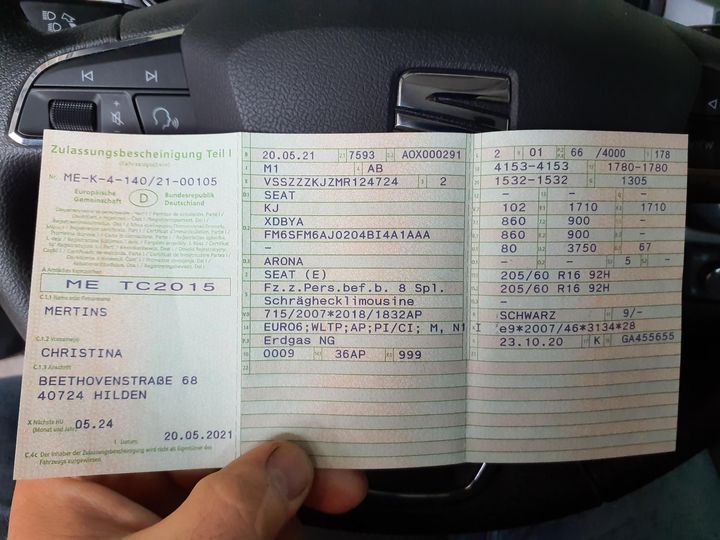 Zulassungsbescheinigung Teil I
(Fahrzeugschein)
Nr. ME-K-4-140/21-00105
Europäische Gemeinschaft D Bundesrepublik Deutschland
A Amtliches Kennzeichen
ME TC2015
C.1.1 Name oder Firmenname
MERTINS
C.1.2 Vorname(n)
CHRISTINA
C.1.3 Anschrift
BEETHOVENSTRAßE 68
40724 HILDEN
X Nächste HU (Monat und Jahr) 05.24
I Datum: 20.05.2021
C.4c Der Inhaber der Zulassungsbescheinigung wird nicht als Eigentümer des Fahrzeugs ausgewiesen.
B 20.05.21 2.1 7593 AOX000291
J M1 4 AB
E VSSZZZKJZMR124724 3 2
D.1 SEAT
KJ
D.2 XDBYA
FM6SFM6AJ0204BI4A1AAA
-
D.3 ARONA
2 SEAT (E)
5 Fz.z.Pers.bef.b. 8 Spl.
Schräghecklimousine
V.9 715/2007*2018/1832AP
14 EURO6;WLTP;AP;PI/CI; M, N1 I
P.3 Erdgas NG
10 0009 14.1 36AP P.1 999
22
L 2 9 01 P.2 P.4 66 /4000 T 178
18 4153-4153 19 1780-1780
20 1532-1532 G 1305
- -
102 F.1 1710 F.2 1710
860 900
860 900
U.1 80 U.2 3750 U.3 67
- - S.1 5 S.2 -
205/60 R16 92H
205/60 R16 92H
-
R SCHWARZ 11 9/-
K e9*2007/46*3134*28
6 23.10.20 17 K 16 GA455655
21